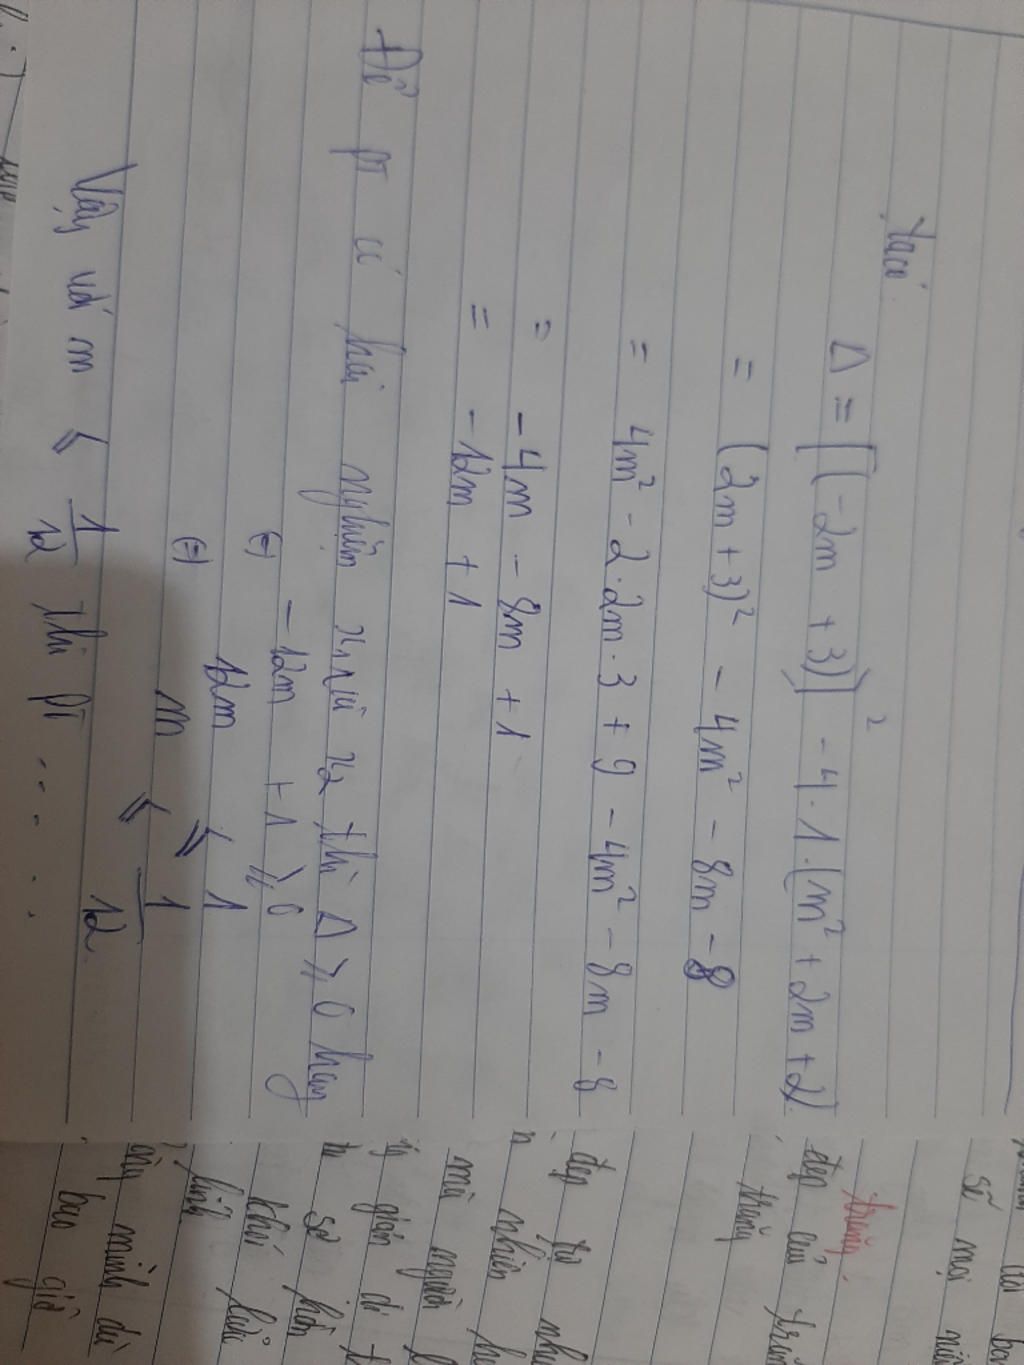 Ta có
Δ = [(-2m + 3)]² - 4.1.(m² + 2m + 2)
= (2m + 3)² - 4m² - 8m - 8
= 4m² - 2.2m.3 + 9 - 4m² - 8m - 8
= -4m - 8m + 1
= -12m + 1
Để pt có hai nghiệm x₁ và x₂ thì Δ ⩾ 0 hay
⇔ -12m + 1 ⩾ 0
⇔ 12m ⩽ 1
m ⩽ 1/12
Vậy với m ⩽ 1/12 thì pt .....
sẽ mọi
trung
đẹp của
thẳng
đẹp tự
nhiên
mà người
giản dị
sơ
khó
linh
mình dù
bao giờ